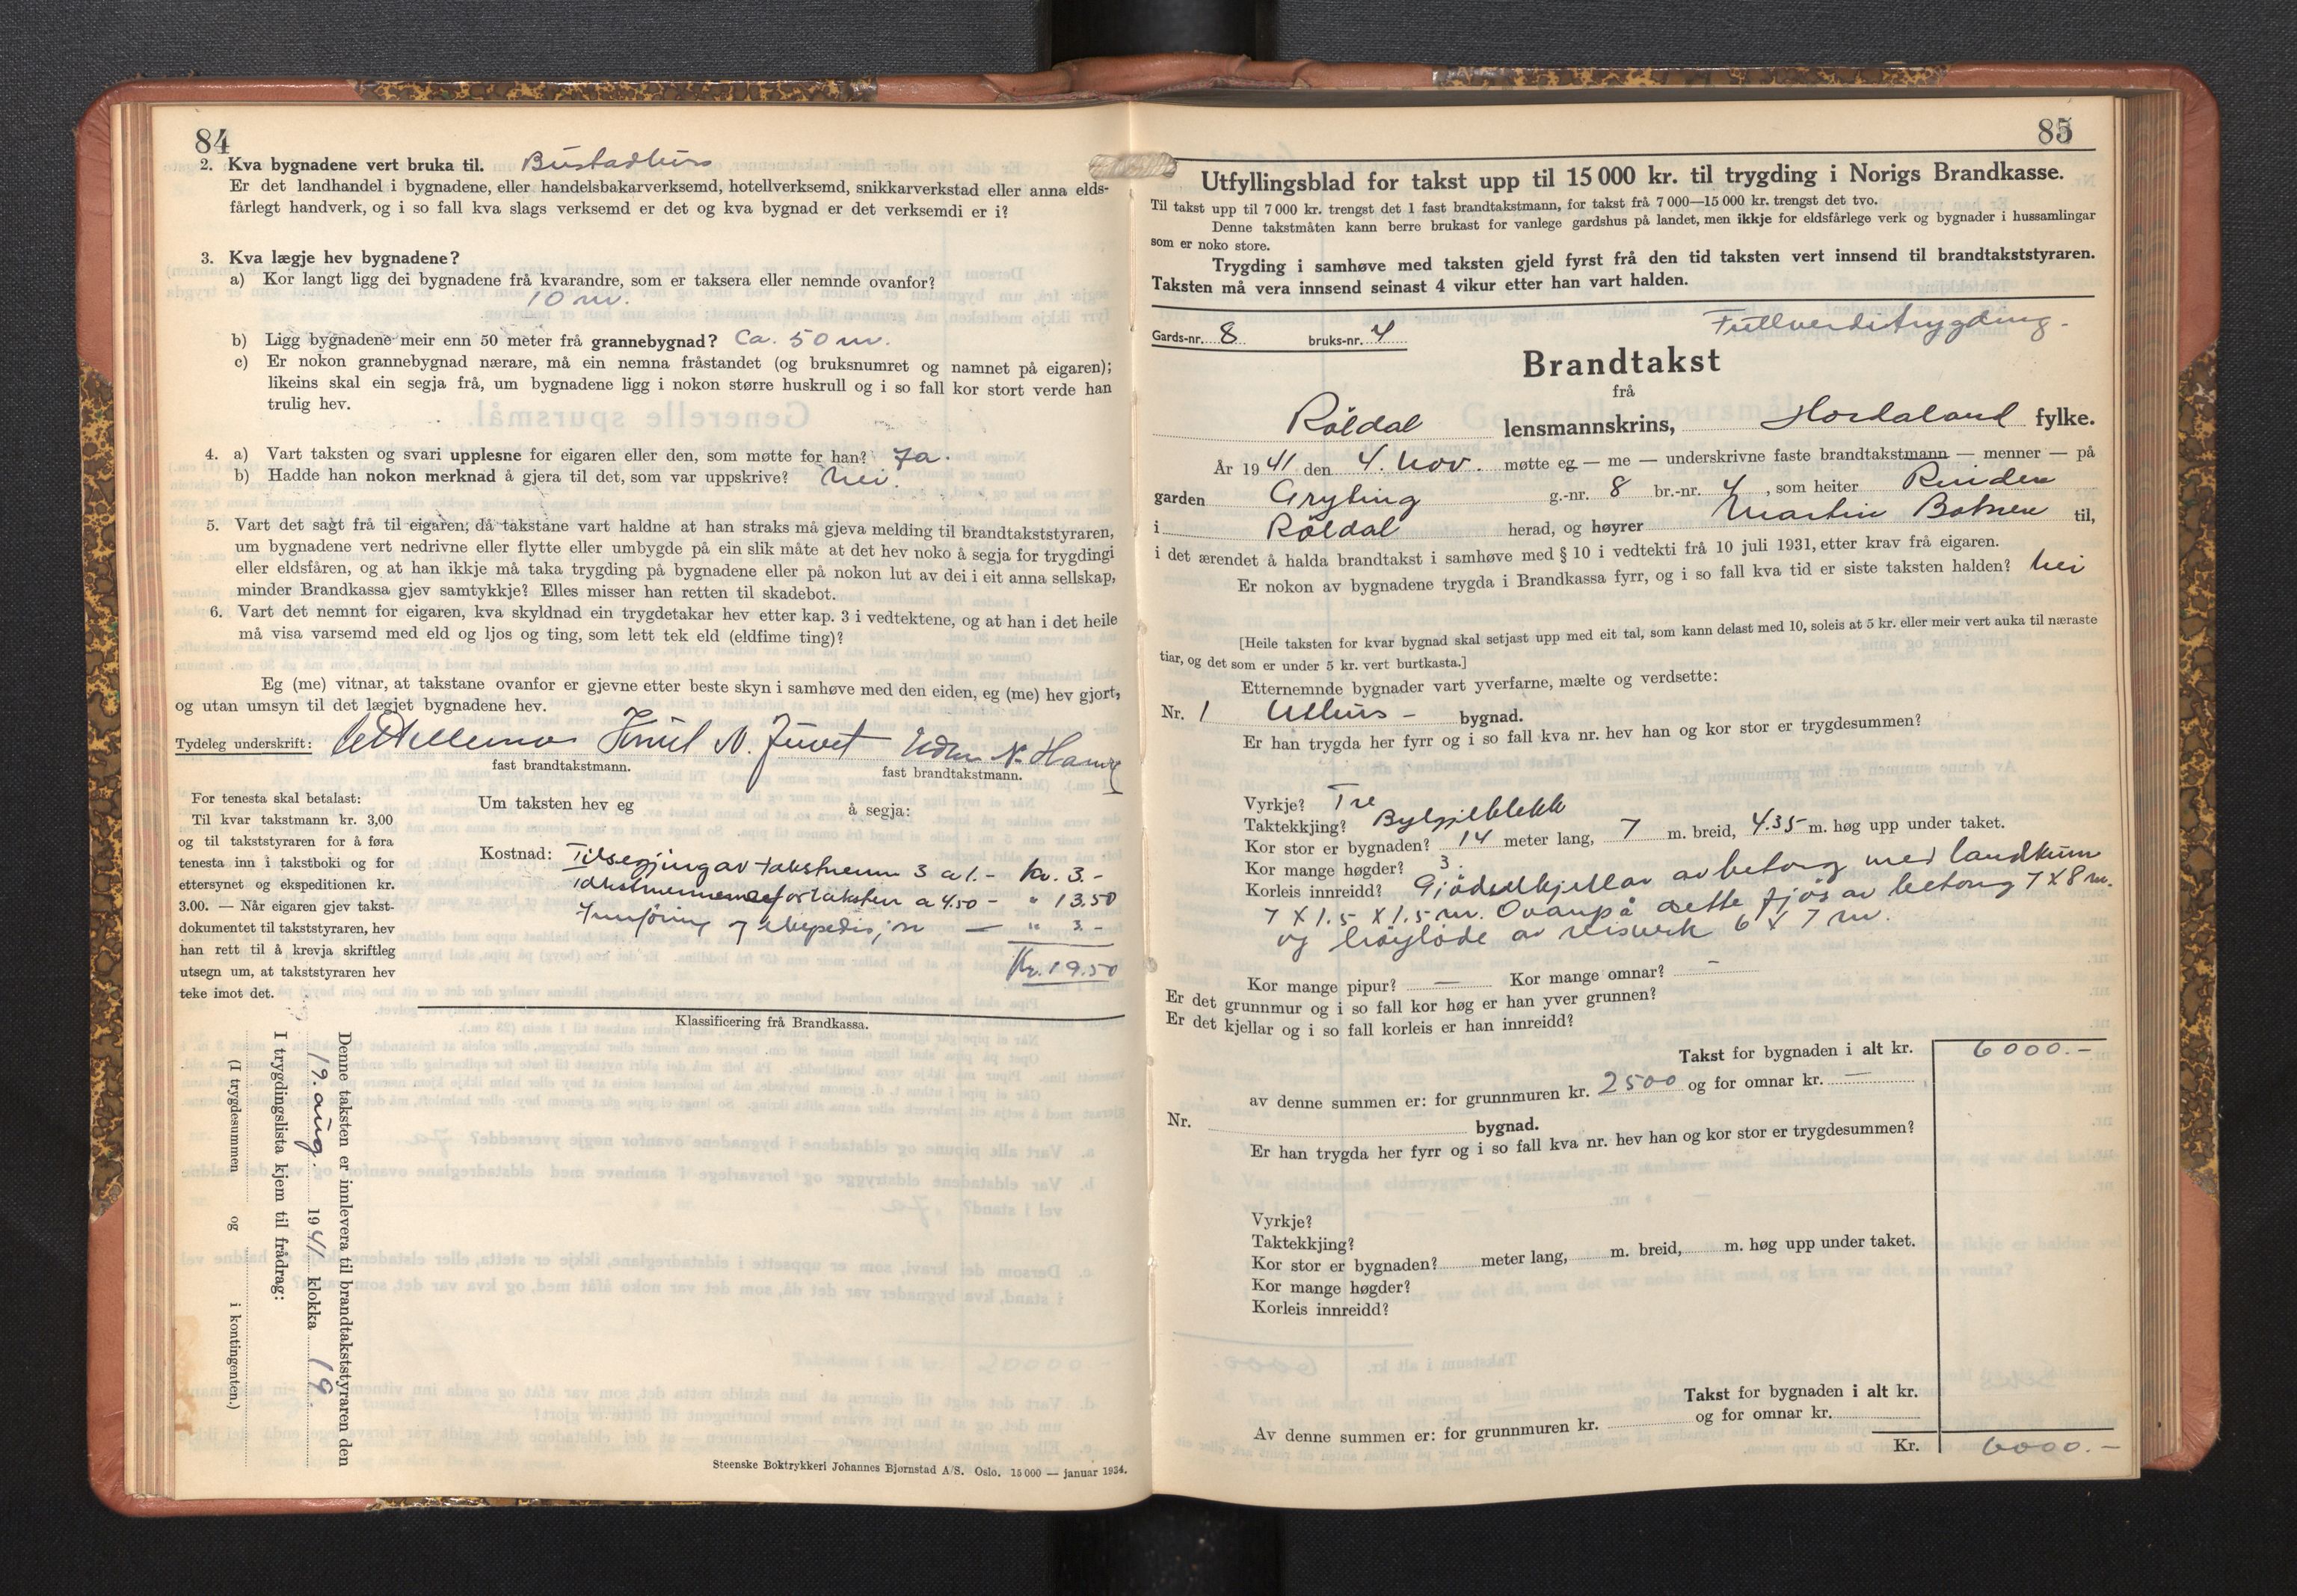 84
2. Kva bygnadene vert bruka til. Bustadhus
Er det landhandel i bygnadene, eller handelsbakarverksemd, hotellverksemd, snikkarverkstad eller anna elds-
fårlegt handverk, og i so fall kva slags verksemd er det og kva bygnad er det verksemdi er i?
3. Kva lægje hev bygnadene?
a) Kor langt ligg dei bygnadene frå kvarandre, som er taksera eller nemnde ovanfor?
10 m.
b) Ligg bygnadene meir enn 50 meter frå grannebygnad? Ca. 50 m.
c) Er nokon grannebygnad nærare, må ein nemna fråstandet (og bruksnumret og namnet på eigaren);
likeins skal ein segja frå, um bygnadene ligg i nokon større huskrull og i so fall kor stort verde han
trulig hev.
4. a) Vart taksten og svari upplesne for eigaren eller den, som møtte for han? Ja.
b) Hadde han nokon merknad å gjera til det, som var uppskrive? Nei.
5. Vart det sagt frå til eigaren; då takstane vart haldne at han straks må gjeva melding til brandtakststyraren,
um bygnadene vert nedrivne eller flytte eller umbygde på ein slik måte at det hev noko å segja for trygdingi
eller eldsfåren, og at han ikkje må taka trygding på bygnadene eller på nokon lut av dei i eit anna sellskap,
minder Brandkassa gjev samtykkje? Elles misser han retten til skadebot.
6. Vart det nemnt for eigaren, kva skyldnad ein trygdetakar hev etter kap. 3 i vedtektene, og at han i det heile
må visa varsemd med eld og ljos og ting, som lett tek eld (eldfime ting)?
Eg (me) vitnar, at takstane ovanfor er gjevne etter beste skyn i samhøve med den eiden, eg (me) hev gjort,
og utan umsyn til det lægjet bygnadene hev.
Tydeleg underskrift: Knut N. Juvet
fast brandtakstmann. fast brandtakstmann.
For tenesta skal betalast:
Til kvar takstmann kr. 3,00
og til takststyraren for å føra
tenesta inn i takstboki og for
ettersynet og ekspeditionen kr.
3.00. — Når eigaren gjev takst-
dokumentet til takststyraren, hev
han rett til å krevja skriftleg
utsegn um, at takststyraren hev
teke imot det.
Um taksten hev eg å segja:
Kostnad: Tilsegjing av takstmenn 3 a 1.- kr. 3.-
Takstmennene for taksten a 4.50 - " 13.50
Innføring og ekspedisjon — " 3.-
Kr. 19.50
Klassificering frå Brandkassa.
Denne taksten er innlevera til brandtakststyraren den
19. aug. 1941 klokka 19.
I trygdingslista kjem til frådrag:
(I trygdesummen og i kontingenten.)
Steenske Boktrykkeri Johannes Bjørnstad A/S. Oslo. 15 000 — januar 1934.
85
Utfyllingsblad for takst upp til 15 000 kr. til trygding i Norigs Brandkasse.
Til takst upp til 7 000 kr. trengst det 1 fast brandtakstmann, for takst frå 7 000—15 000 kr. trengst det tvo.
Denne takstmåten kann berre brukast for vanlege gardshus på landet, men ikkje for eldsfårlege verk og bygnader i hussamlingar
som er noko store.
Trygding i samhøve med taksten gjeld fyrst frå den tid taksten vert innsend til brandtakststyraren.
Taksten må vera innsend seinast 4 vikur etter han vart halden.
Fullverdetrygding.
Gards-nr. 8 bruks-nr. 4
Brandtakst
frå
Röldal lensmannskrins, Hordaland fylke.
År 1941 den 4. nov. møtte eg — me — underskrivne faste brandtakstmann — menner — på
garden Gryting g.-nr. 8 br.-nr. 4, som heiter Rinden
i Röldal herad, og høyrer Martin Botnen til,
i det ærendet å halda brandtakst i samhøve med § 10 i vedtekti frå 10 juli 1931, etter krav frå eigaren.
Er nokon av bygnadene trygda i Brandkassa fyrr, og i so fall kva tid er siste taksten halden? Nei
[Heile taksten for kvar bygnad skal setjast upp med eit tal, som kann delast med 10, soleis at 5 kr. eller meir vert auka til næraste
tiar, og det som er under 5 kr. vert burtkasta.]
Etternemnde bygnader vart yverfarne, mælte og verdsette:
Nr. 1 Uthus - bygnad.
Er han trygda her fyrr og i so fall kva nr. hev han og kor stor er trygdesummen?
Vyrkje? Tre
Taktekkjing? Bylgjeblekk
Kor stor er bygnaden? 14 meter lang, 7 m. breid, 4.35 m. høg upp under taket.
Kor mange høgder? 3.
Korleis innreidd? Gjödselkjellar av betong med landkum
7 X 1.5 X 1.5 m. Ovanpå dette fjös av betong 7 X 8 m.
og höyløde av reisverk 6 X 7 m.
Kor mange pipur? — Kor mange omnar? —
Er det grunnmur og i so fall kor høg er han yver grunnen?
Er det kjellar og i so fall korleis er han innreidd?
Takst for bygnaden i alt kr. 6000.-
av denne summen er: for grunnmuren kr. 2500 og for omnar kr. —
Nr. bygnad.
Er han trygda her fyrr og i so fall kva nr. hev han og kor stor er trygdesummen?
Vyrkje?
Taktekkjing?
Kor stor er bygnaden? meter lang, m. breid, m. høg upp under taket.
Kor mange høgder?
Korleis innreidd?
Takst for bygnaden i alt kr.
Av denne summen er: for grunnmuren kr. og for omnar kr.
Kr. 6000.-